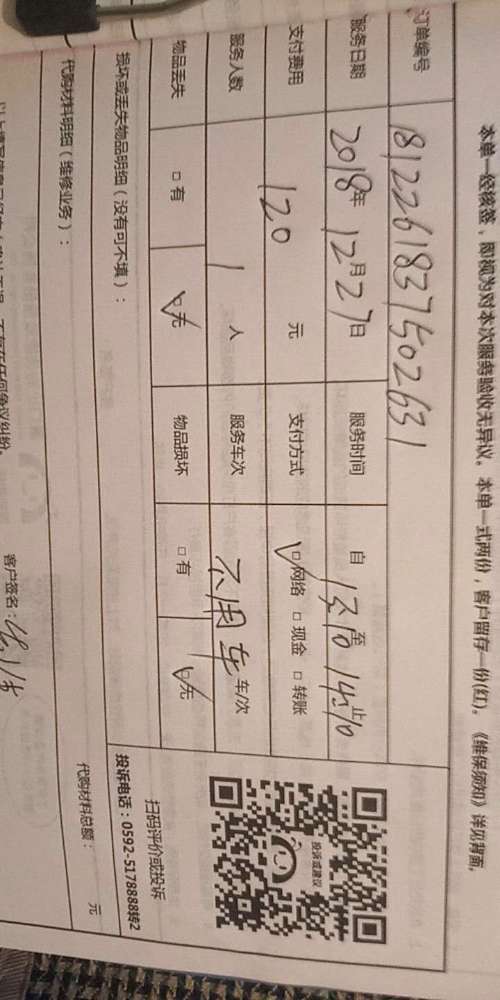 本单一经核签，即视为对本次服务验收无异议。本单一式两份，客户留存一份(红)。《维保须知》详见背面。
订单编号 181226183750263 1
服务日期 2018年12月27日 服务时间 自 13:10 至 14:10 止
支付费用 120 元 支付方式 ☑网络 □现金 □转账
服务人数 1 人 服务车次 不用车 车/次
物品丢失 □有 ☑无 物品损坏 □有 ☑无
扫码评价或投诉
投诉或建议
投诉电话：0592-5178888转2
损坏或丢失物品明细（没有可不填）：
代购材料明细（维修业务）：
代购材料总额： 元
不存在任何争议纠纷。
客户签名：